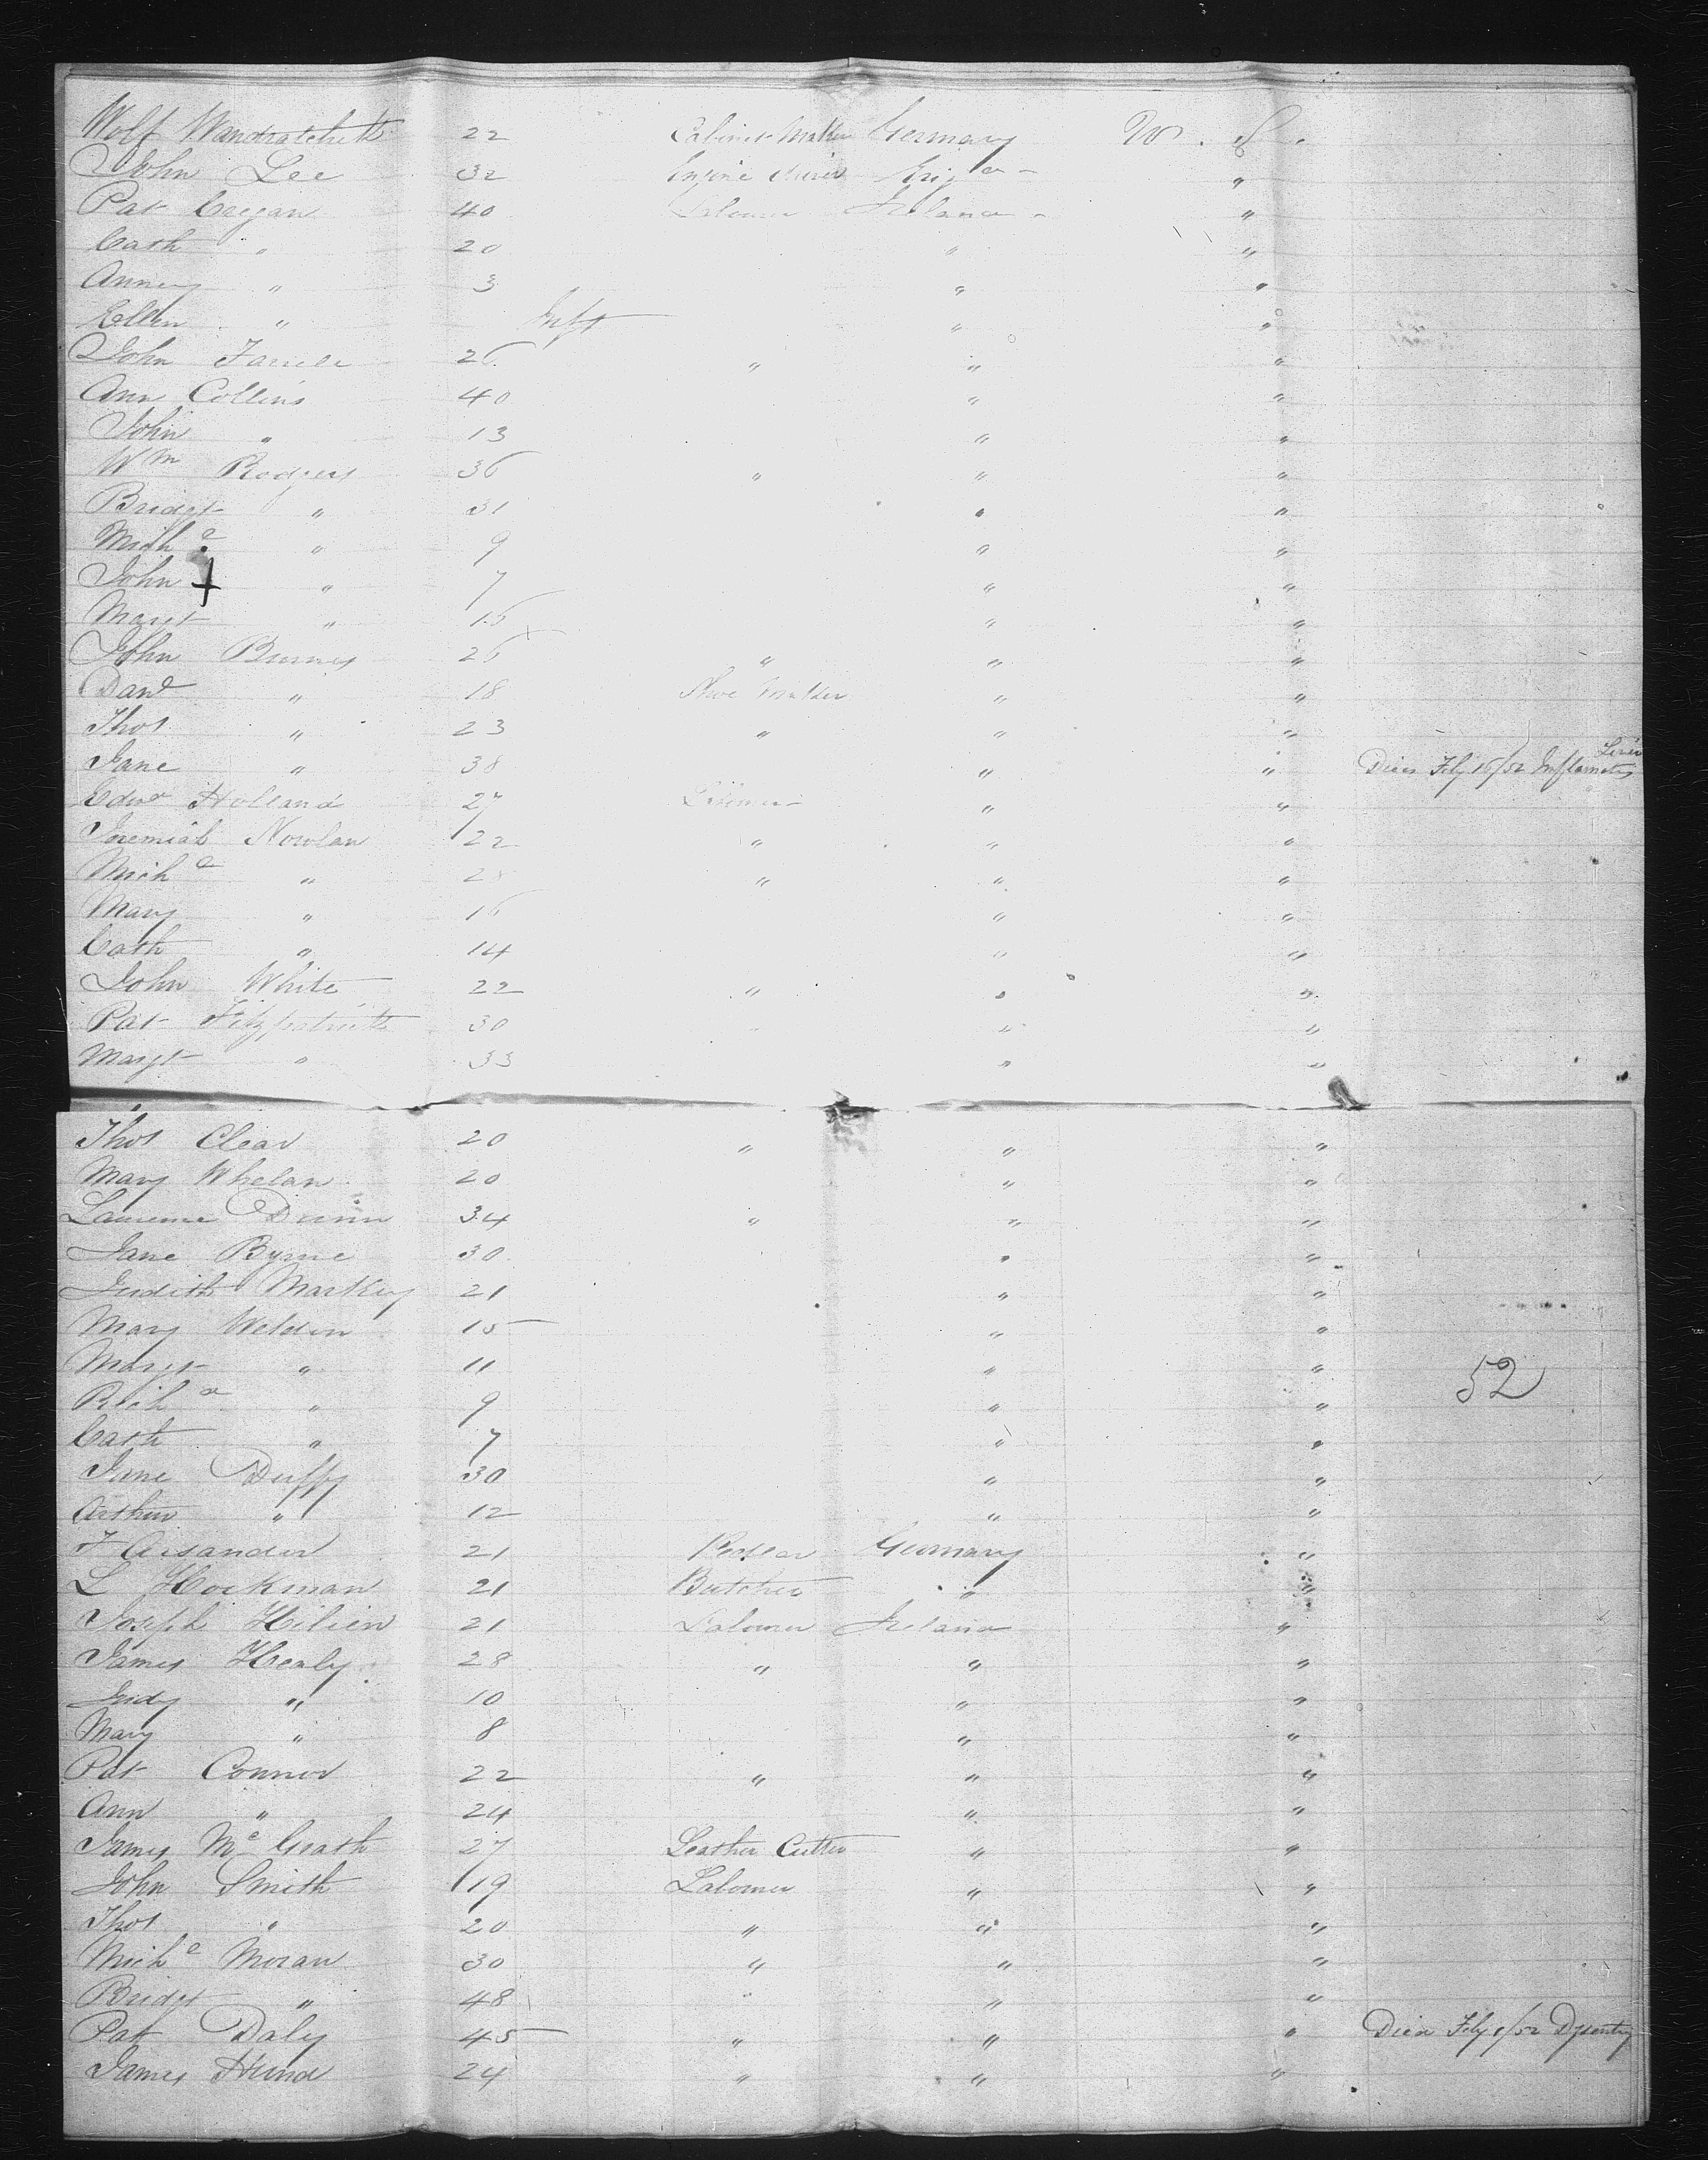 Wolf 22 Cabinet Maker Germany U. S.
John Lee 32 Engine Driver "
Pat Cregan 40 Labourer Ireland "
Cath " 20 " "
Anney " 3 " "
Ellen " Inft " "
John 26 " " "
Ann Collins 40 " "
John " 13 " "
Wm Rodgers 36 " " "
Bridgt " 31 " "
Michl " 9 " "
John " 7 " "
Margt " 15 " "
John Burnes 26 " " "
Danl " 18 Shoe Maker " "
Thos " 23 " " "
Jane " 38 " " Died Feby 16/52 Inflamatn Liver
Edwd Holland 27 Labourer " "
Jeremiah Nowlan 22 " " "
Michl " 28 " " "
Mary " 16 " "
Cath " 14 " "
John White 22 " " "
Pat Fitzpatrick 30 " " "
Margt " 33 " "
Thos Clear 20 " " "
Mary Whelan 20 " "
Laurence Dunn 34 " " "
Jane Byrne 30 " "
Judith Markey 21 " "
Mary Weldon 15 " "
Margt " 11 " "
Richd " 9 " "
52
Cath " 7 " "
Jane Duffy 30 " "
Arthur " 12 " "
21 Germany "
L Hockman 21 Butcher " "
Joseph 21 Labourer Ireland "
James Healy 28 " " "
Judy " 10 " "
Mary " 8 " "
Pat Connor 22 " " "
Ann " 24 " "
James McGrath 27 Leather Cutter " "
John Smith 19 Labourer " "
Thos " 20 " " "
Michl Moran 30 " " "
Bridgt " 48 " "
Pat Daly 45 " " " Died Feby 1/52 Dysentry
James 24 " " "